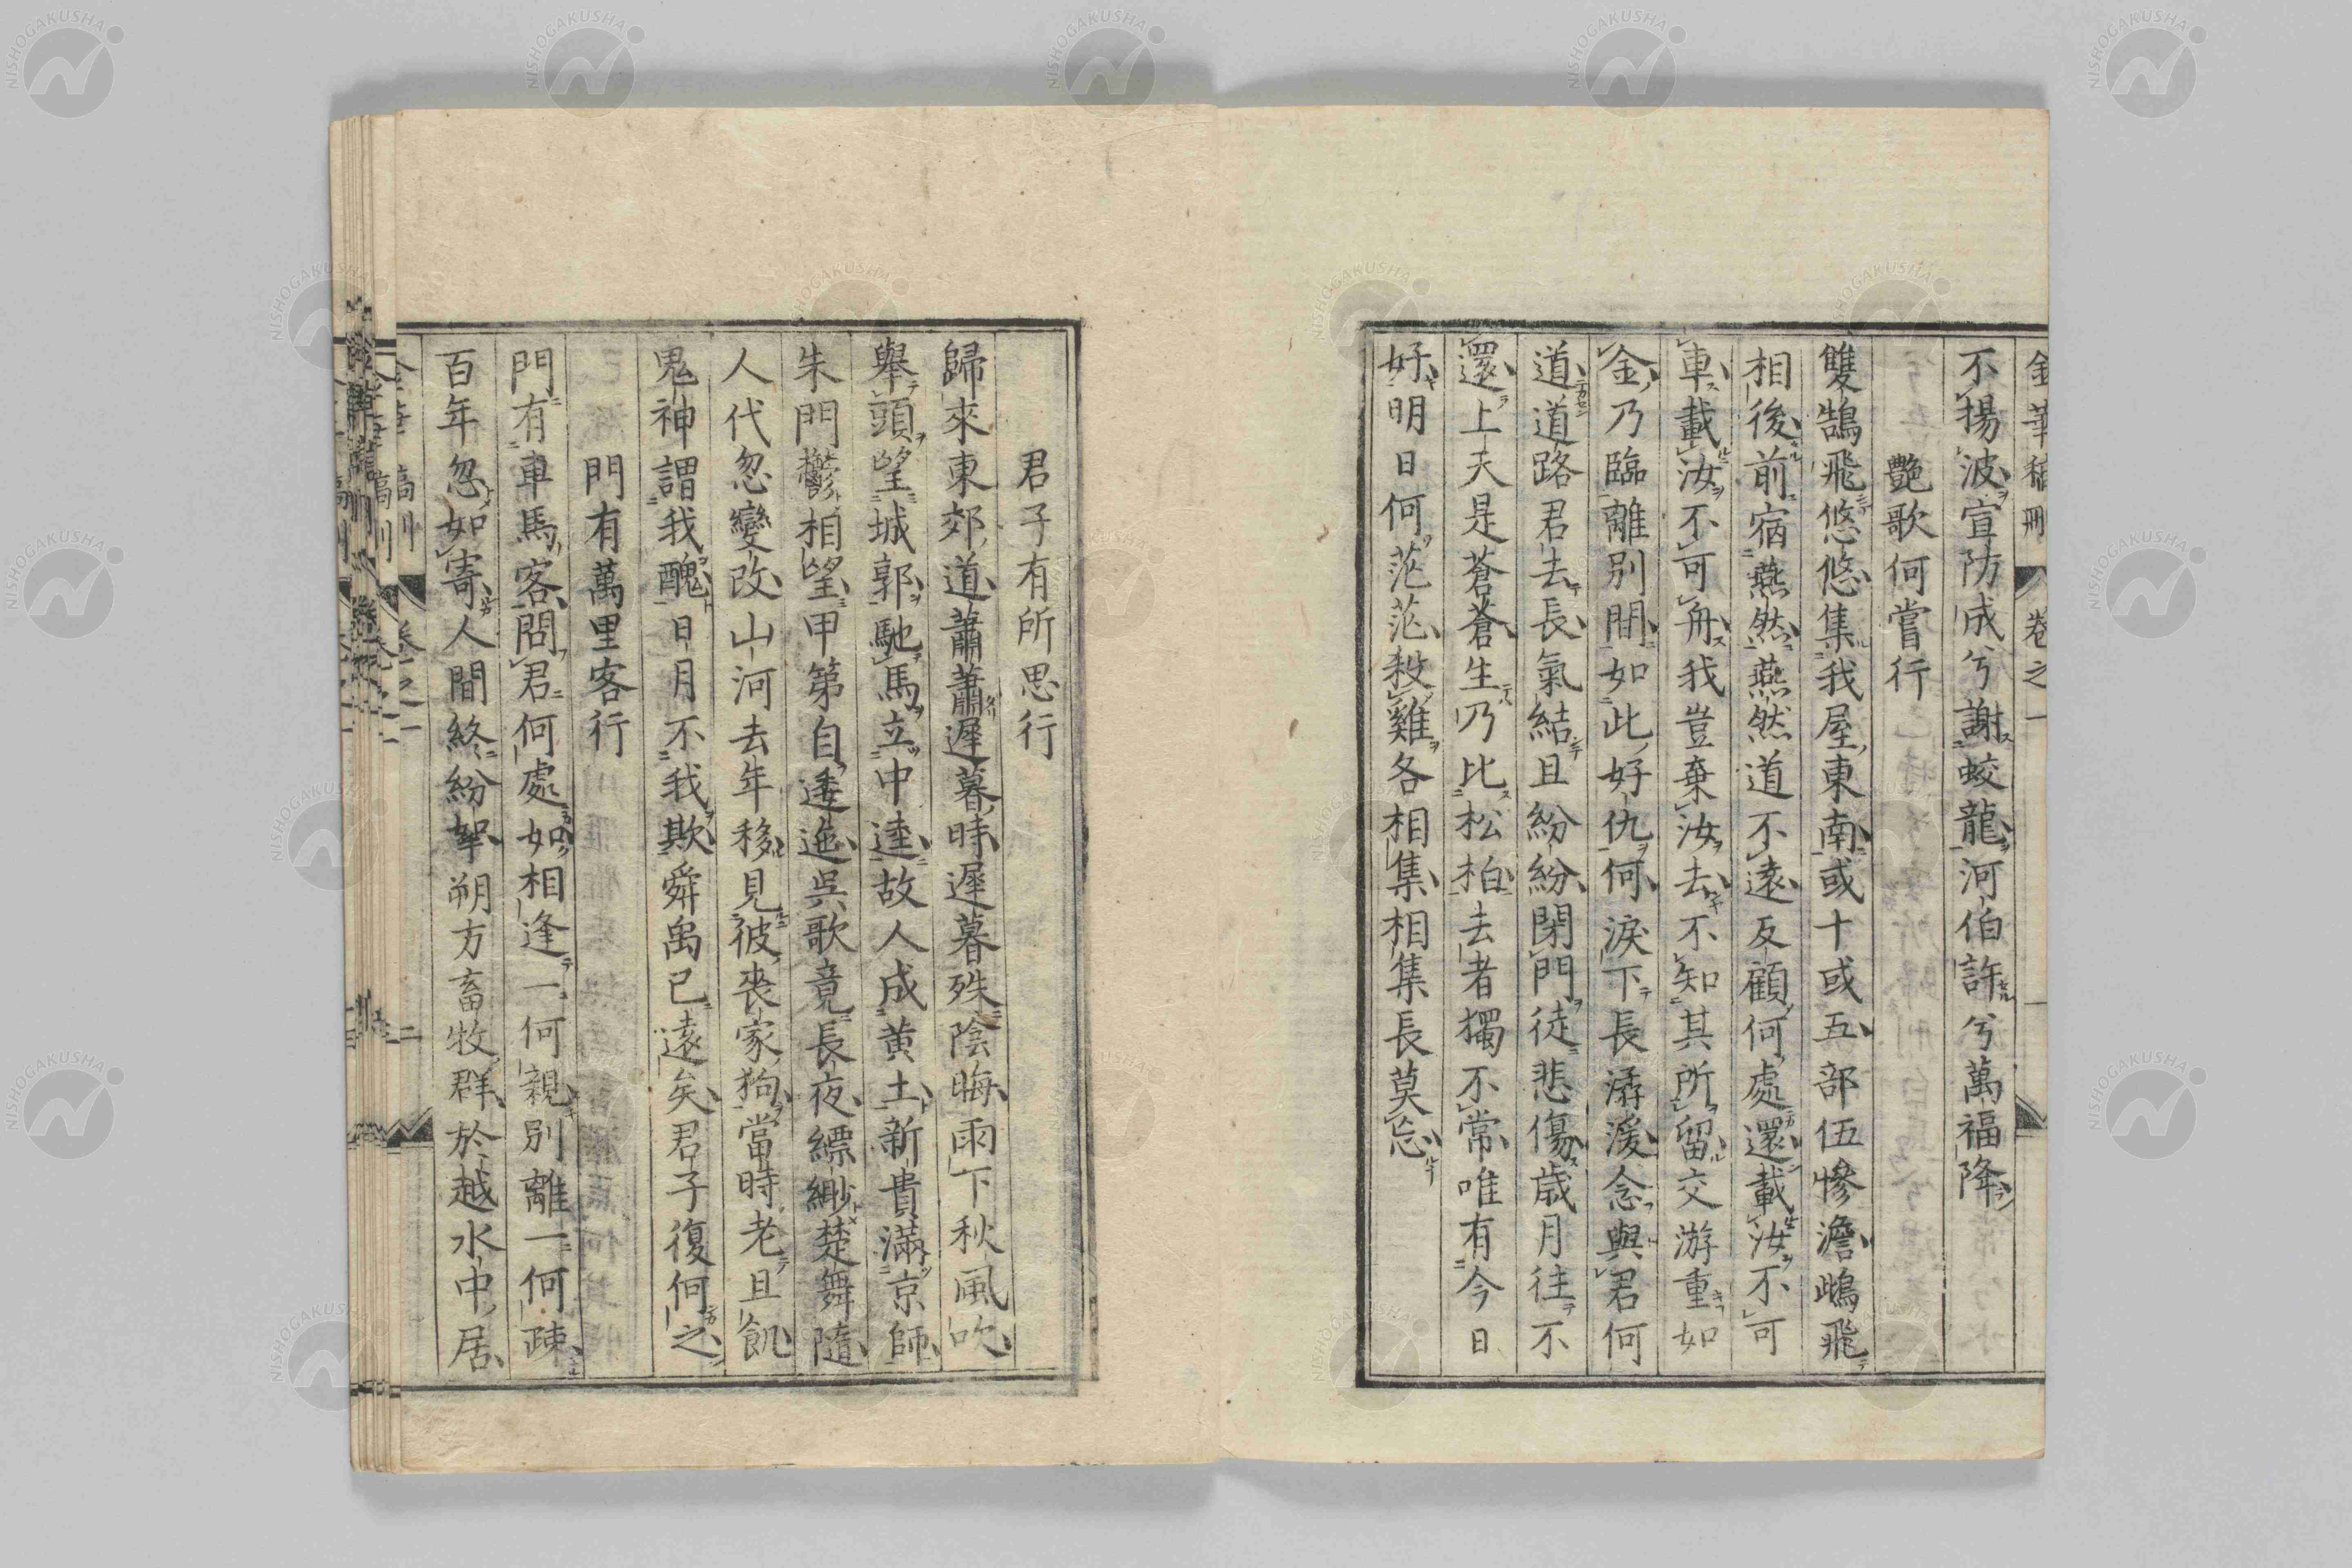 金華稿刪 卷之一
不揚波宣防成兮謝蛟龍河伯許兮萬福降
艷歌何嘗行
雙鵠飛悠悠集我屋東南或十或五部伍慘澹鴟飛
相後前宿燕然燕然道不遠反顧何處還載汝不可
車載汝不可舟我豈棄汝去不知其所留交游重如
金乃臨離別間如此好仇何淚下長潺湲念與君何
道道路君去長氣結且紛紛閉門徒悲傷歲月往不
還上天是蒼蒼生乃比松柏去者獨不常唯有今日
好明日何茫茫殺雞各相集相集長莫忘
君子有所思行
歸來東郊道蕭蕭遲暮時遲暮殊陰晦雨下秋風吹
舉頭望城郭馳馬立中逵故人成黃土新貴滿京師
朱門鬱相望甲第自逶迤吳歌竟長夜縹緲楚舞隨
人代忽變改山河去年移見彼喪家狗當時老且飢
鬼神謂我醜日月不我欺舜禹已遠矣君子復何之
門有萬里客行
門有車馬客問君何處如相逢一何親別離一何疎
百年忽如寄人間終紛挐朔方畜牧群於越水中居